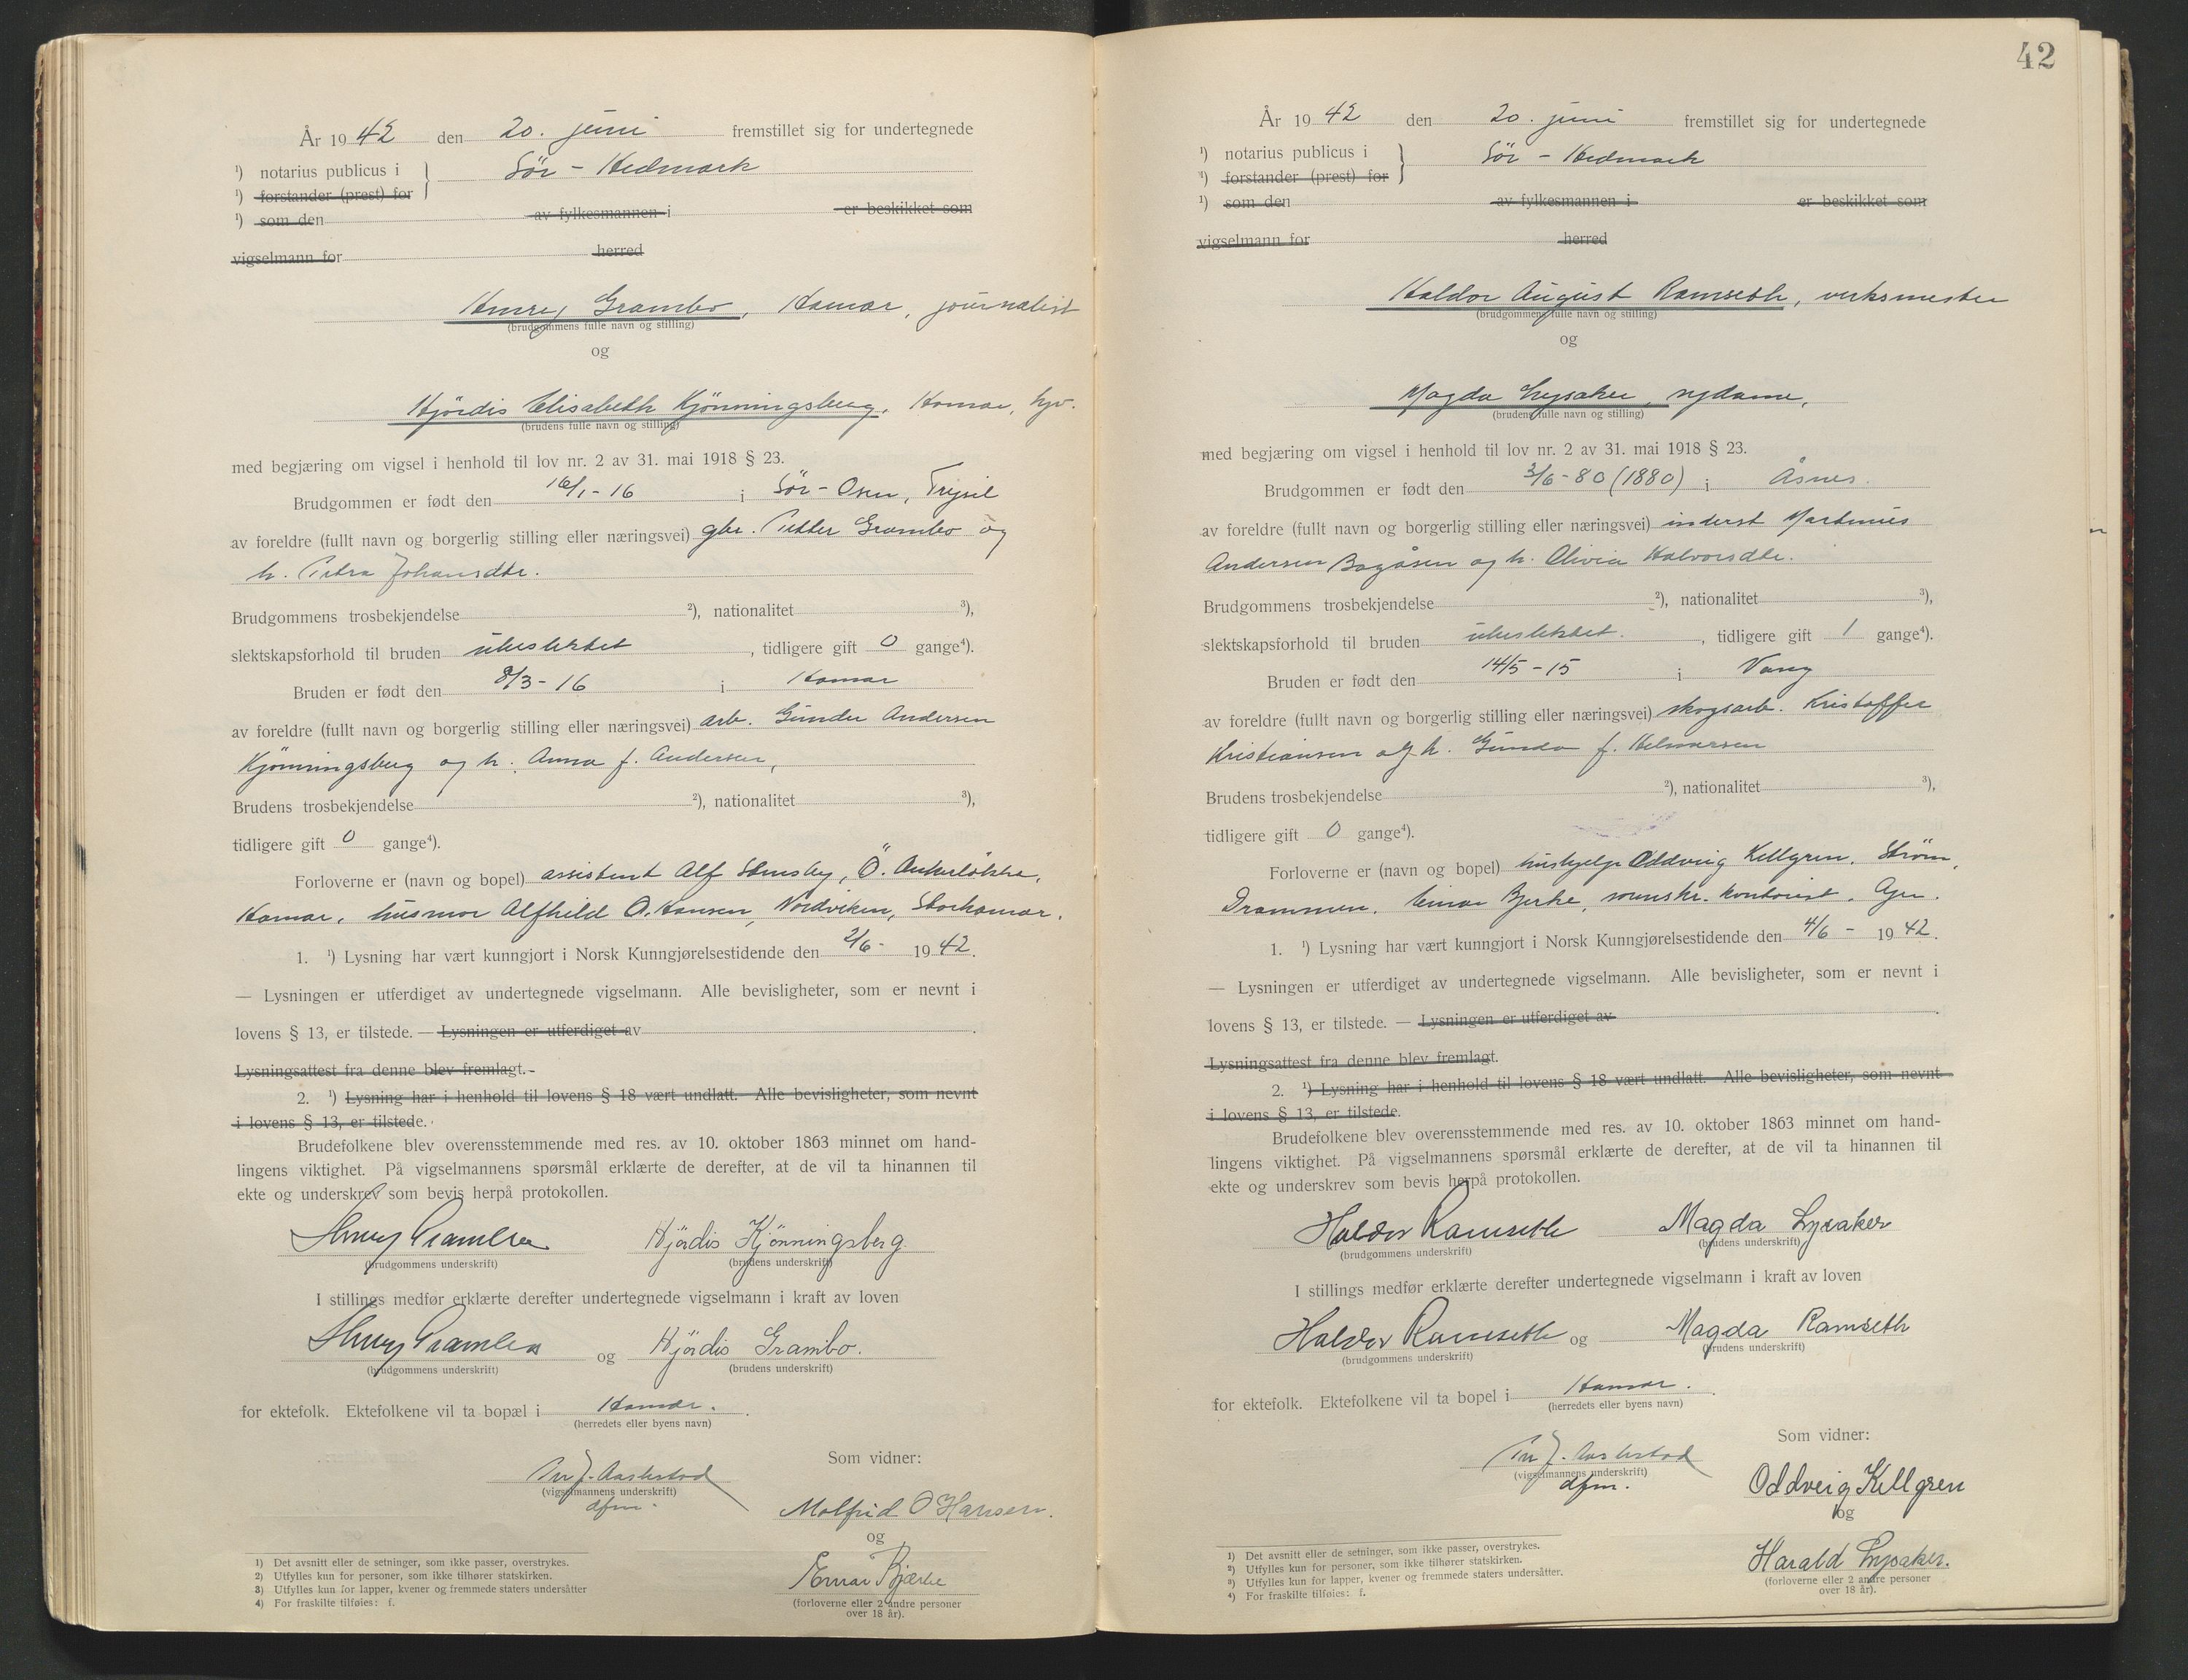 År 1942 den 20. juni fremstillet sig for undertegnede
¹) notarius publicus i } Sör - Hedmark
¹) forstander (prest) for
¹) som den av fylkesmannen i er beskikket som
vigselmann for herred
Henry Grambo, Hamar, journalist
(brudgommens fulle navn og stilling)
og
Hjördis Elisabeth Kjönningsberg, Hamar, hjv.
(brudens fulle navn og stilling)
med begjæring om vigsel i henhold til lov nr. 2 av 31. mai 1918 § 23.
Brudgommen er født den 16/1-16 i Sör-Osen, Trysil
av foreldre (fullt navn og borgerlig stilling eller næringsvei) gbr. Petter Grambo og
h. Petra Johansdtr.
Brudgommens trosbekjendelse ²), nationalitet ³),
slektskapsforhold til bruden ubeslektet, tidligere gift 0 gange⁴).
Bruden er født den 8/3-16 i Hamar
av foreldre (fullt navn og borgerlig stilling eller næringsvei) arb. Gunder Andersen
Kjönningsberg og h. Anna f. Andersen,
Brudens trosbekjendelse ²), nationalitet ³),
tidligere gift 0 gange⁴).
Forloverne er (navn og bopel) assistent Alf Stensby, Ö. Ankerlökka,
Hamar, husmor Alfhild O. Hansen, Nordviken, Storhamar.
1. ¹) Lysning har vært kunngjort i Norsk Kunngjørelsestidende den 2/6- 1942.
— Lysningen er utferdiget av undertegnede vigselmann. Alle bevisligheter, som er nevnt i
lovens § 13, er tilstede. — Lysningen er utferdiget av
Lysningsattest fra denne blev fremlagt. -
2. ¹) Lysning har i henhold til lovens § 18 vært undlatt. Alle bevisligheter, som nevnt
i lovens § 13, er tilstede.
Brudefolkene blev overensstemmende med res. av 10. oktober 1863 minnet om hand-
lingens viktighet. På vigselmannens spørsmål erklærte de derefter, at de vil ta hinannen til
ekte og underskrev som bevis herpå protokollen.
Henry Grambo Hjördis Kjönningsberg
(brudgommens underskrift) (brudens underskrift)
I stillings medfør erklærte derefter undertegnede vigselmann i kraft av loven
Henry Grambo og Hjördis Grambo.
(brudgommens underskrift) (brudens underskrift)
for ektefolk. Ektefolkene vil ta bopæl i Hamar.
(herredets eller byens navn)
Som vidner:
(vigselmannens underskrift)
dfm.
Molfrid O Hansen.
og
Einar Bjerke
(forloverne eller 2 andre personer
over 18 år).
1) Det avsnitt eller de setninger, som ikke passer, overstrykes.
2) Utfylles kun for personer, som ikke tilhører statskirken.
3) Utfylles kun for lapper, kvener og fremmede staters undersåtter
4) For fraskilte tilføies: f.
42
År 1942 den 20. juni fremstillet sig for undertegnede
¹) notarius publicus i } Sör - Hedmark
¹) forstander (prest) for
¹) som den av fylkesmannen i er beskikket som
vigselmann for herred
Haldor August Ramseth, verksmester
(brudgommens fulle navn og stilling)
og
Magda Lysaker, sydame,
(brudens fulle navn og stilling)
med begjæring om vigsel i henhold til lov nr. 2 av 31. mai 1918 § 23.
Brudgommen er født den 3/6-80 (1880) i Åsnes.
av foreldre (fullt navn og borgerlig stilling eller næringsvei) inderst Martinius
Andersen Bogåsen og h. Olivia Halvorsdtr.
Brudgommens trosbekjendelse ²), nationalitet ³),
slektskapsforhold til bruden ubeslektet., tidligere gift 1 gange⁴).
Bruden er født den 14/5-15 i Vang
av foreldre (fullt navn og borgerlig stilling eller næringsvei) skogsarb. Kristoffer
Kristiansen og h. Gunda f. Helmersen
Brudens trosbekjendelse ²), nationalitet ³),
tidligere gift 0 gange⁴).
Forloverne er (navn og bopel) hushjelp Oddveig Kellgren, Ström,
Drammen. Einar Bjerke, sorenskr. kontorist.
1. ¹) Lysning har vært kunngjort i Norsk Kunngjørelsestidende den 4/6 - 1942.
— Lysningen er utferdiget av undertegnede vigselmann. Alle bevisligheter, som er nevnt i
lovens § 13, er tilstede. — Lysningen er utferdiget av
Lysningsattest fra denne blev fremlagt.
2. ¹) Lysning har i henhold til lovens § 18 vært undlatt. Alle bevisligheter, som nevnt
i lovens § 13, er tilstede.
Brudefolkene blev overensstemmende med res. av 10. oktober 1863 minnet om hand-
lingens viktighet. På vigselmannens spørsmål erklærte de derefter, at de vil ta hinannen til
ekte og underskrev som bevis herpå protokollen.
Haldor Ramseth Magda Lysaker
(brudgommens underskrift) (brudens underskrift)
I stillings medfør erklærte derefter undertegnede vigselmann i kraft av loven
Haldor Ramseth og Magda Ramseth
(brudgommens underskrift) (brudens underskrift)
for ektefolk. Ektefolkene vil ta bopel i Hamar.
(herredets eller byens navn)
Som vidner:
(vigselmannens underskrift)
dfm.
Oddveig Kellgren
og
Harald Lysaker.
(forloverne eller 2 andre personer
over 18 år).
1) Det avsnitt eller de setninger, som ikke passer, overstrykes.
2) Utfylles kun for personer, som ikke tilhører statskirken.
3) Utfylles kun for lapper, kvener og fremmede staters undersåtter.
4) For fraskilte tilføies: f.